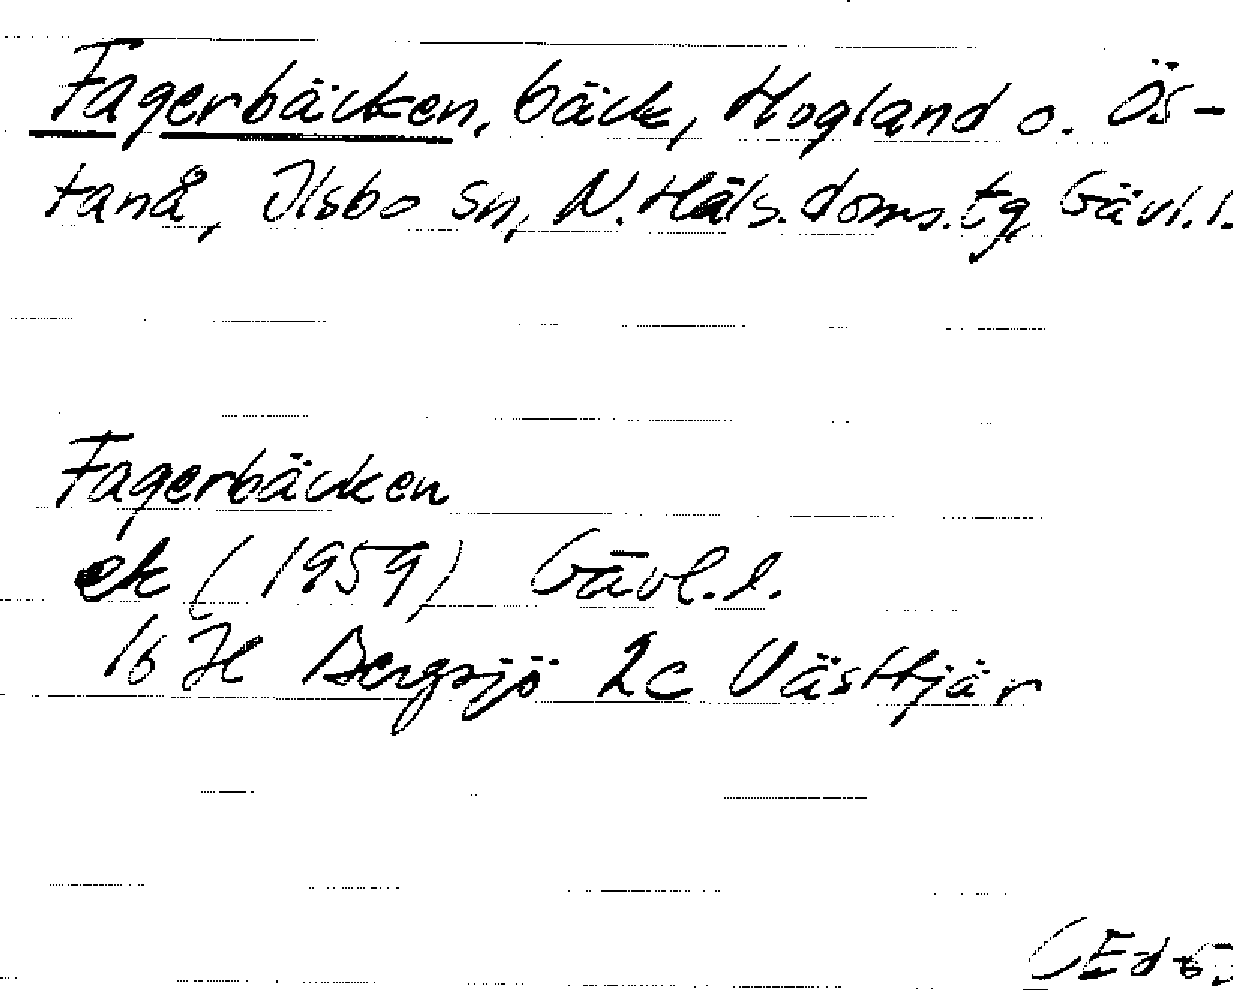 Fagerbäcken, bäck, Hogland o. Ös-
tanå, Ilsbo sn, N. Häls. doms. tg Gävl. l.
Fagerbäcken
ek (1959) Gävl. l.
16 H Bergsjö 2c Västtjär